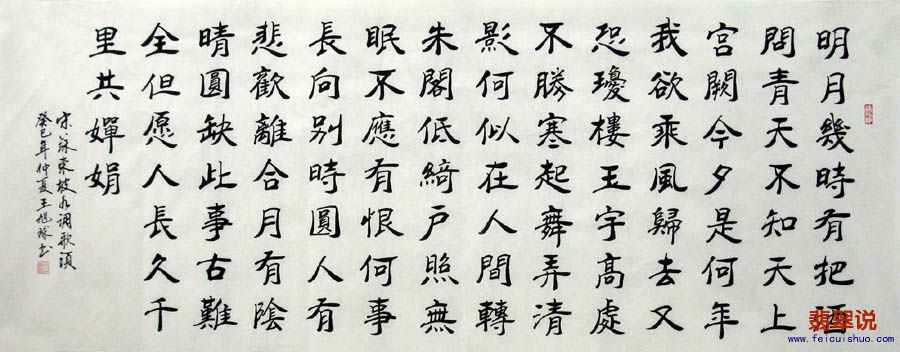 明月幾時有把酒
問青天不知天上
宮闕今夕是何年
我欲乘風歸去又
恐瓊樓玉宇高處
不勝寒起舞弄清
影何似在人間轉
朱閣低綺戶照無
眠不應有恨何事
長向别時圓人有
悲歡離合月有陰
晴圓缺此事古難
全但愿人長久千
里共嬋娟
宋苏東坡水调歌頭
癸巳年仲夏王旭书
翡翠说
www.feicuishuo.com